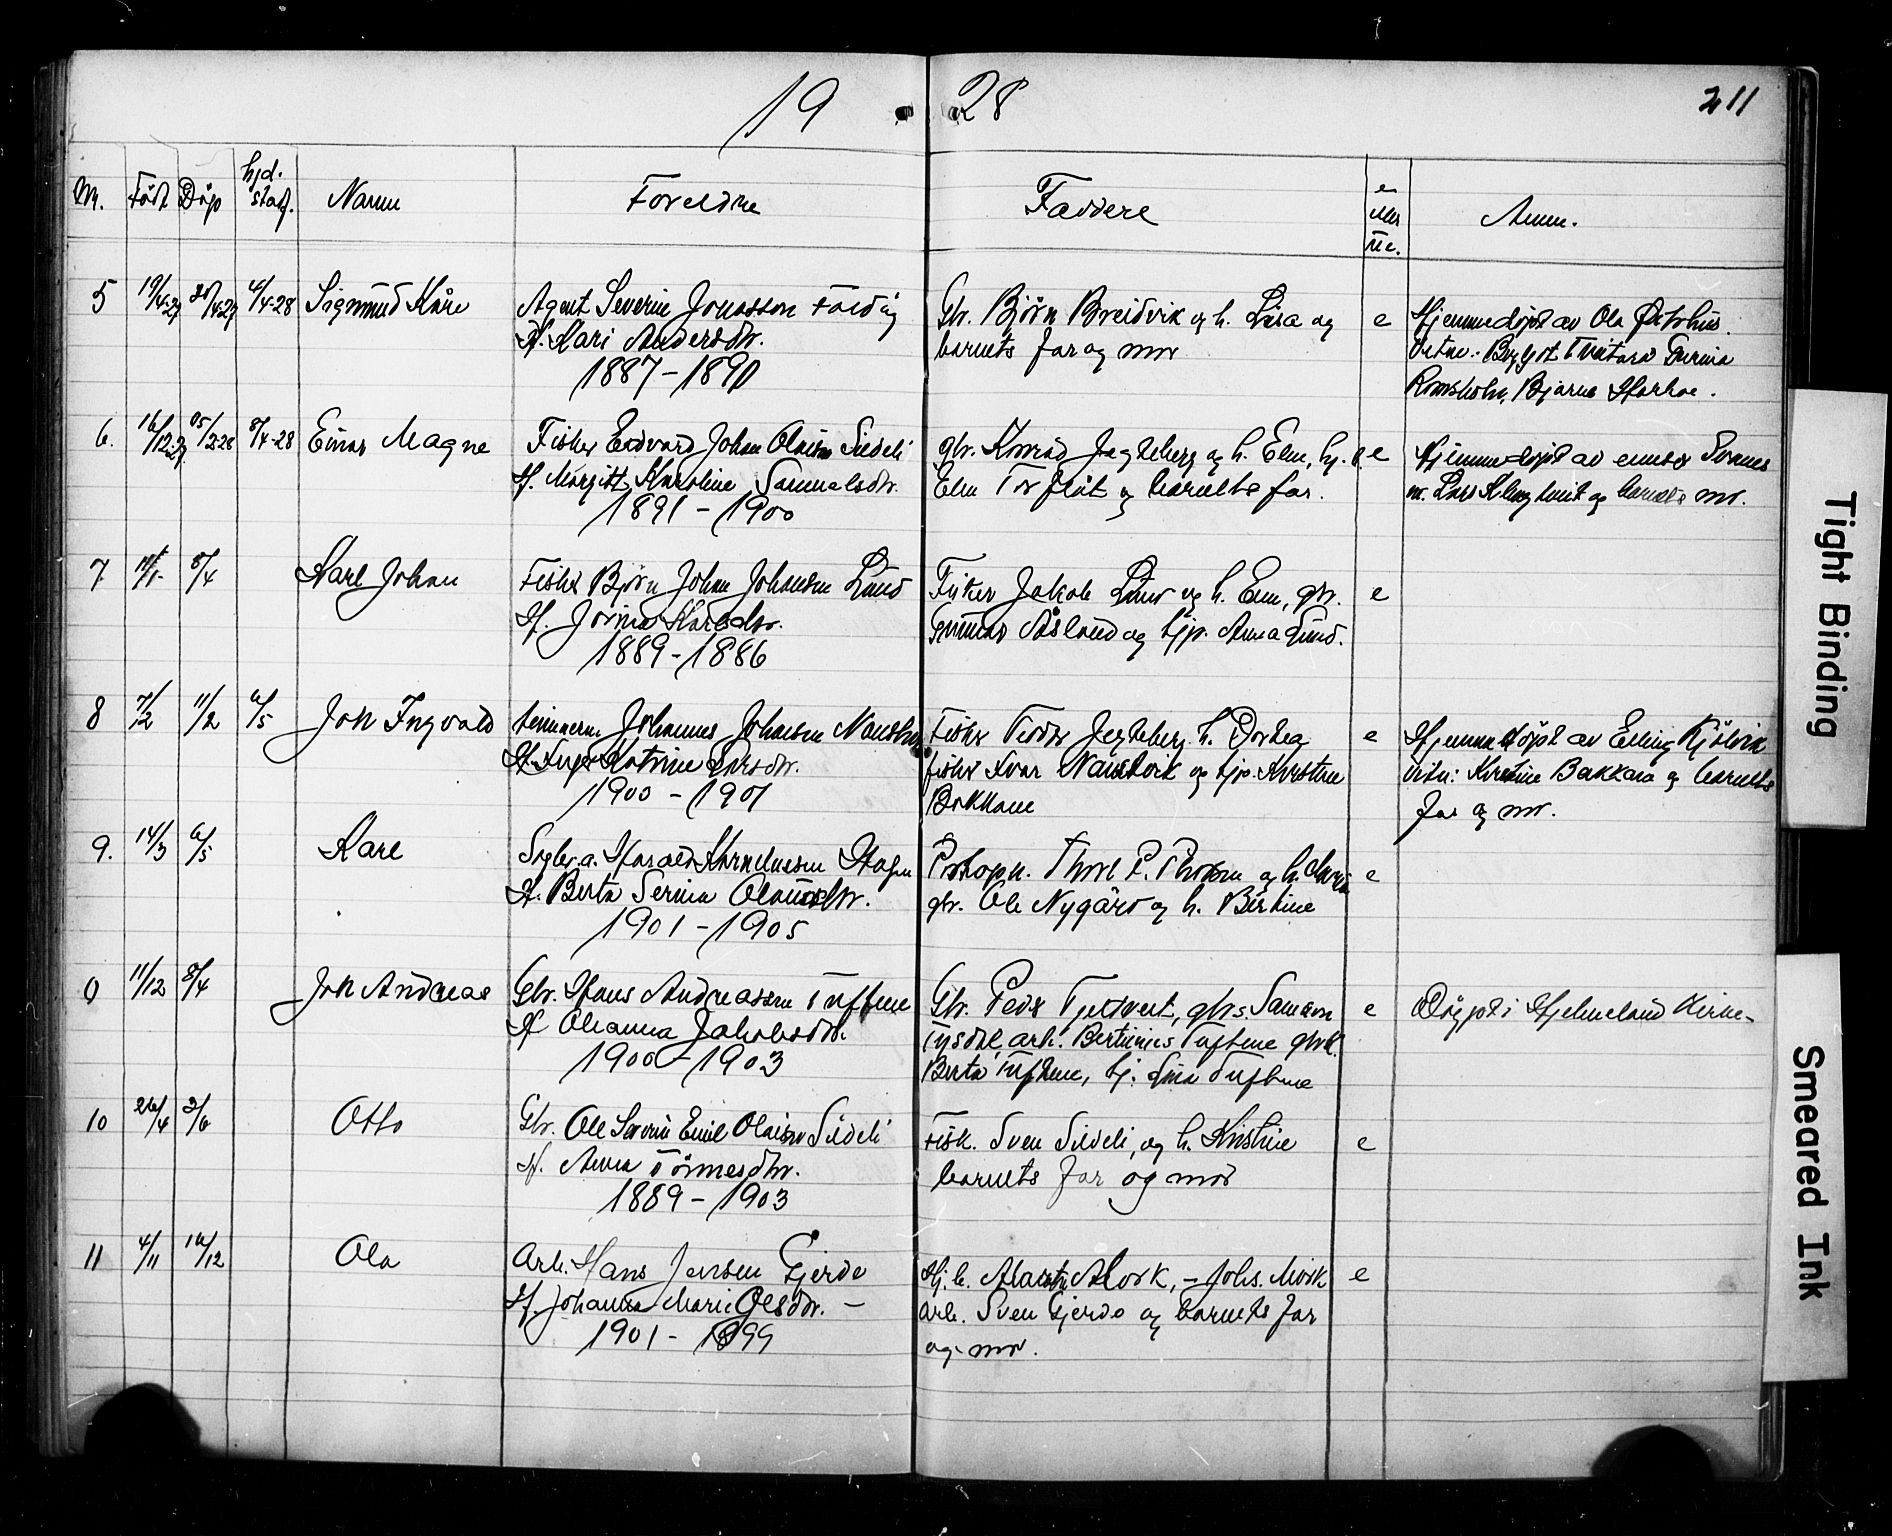 19 28
211
Nr. Født Døp hjd. stad. Namn Foreldre Faddere e eller ue. Anm.
5 19/4-27 4/4-28 Sigmund Kåre Agent Severin Jonasson
H. Kari Andersdtr.
1887 - 1890
Gbr. Bjørn Breidvik og h. Lisa og
barnets far og mor
e
Hjemmedøpt av Ola
Vitne:
Bjarne
6. 16/12-27 8/4-28 Einar Magne Fisker Edvard Johan Olaisen Sildeli
H. Margitt Karoline Samuelsdtr.
1891 - 1900
gbr. Konrad Jegteberg og h. Elen, hj. e
Elen og barnets far.
Hjemmedøpt av
m. Lars og barnets mor.
7 8/4 Karl Johan Fisker Bjørn Johan Johansen Lund
H. Karlsdtr.
1889 - 1886
Fisker Jakob Lund og h. Elen, gbr. e
Gunnar Åsland og hjp. Anna Lund.
8 7/2 11/2 6/5 Jon Ingvald Johannes Johansen
H. Inger Katrine Larsdtr.
1900 - 1901
Fisker Jegteberg h. Dortea e
fisker Ivar Naustvik og hjp. Kirstine
Bakkane
Hjemmedøpt av Elling Kjølvik
Vitn: Kirstine Bakkane og barnets
far og mor.
9. 14/3 6/5 Karl Harald Korneliussen Hagen
H. Berta Serina Olausdtr.
1901 - 1905
Postopn. Thore P. og h. e
gbr. Ole Nygård og h. Bertine
9 11/12 8/4 Jon Andreas Gbr. Hans Andreassen Tuftene
H Olianna Jakobsdtr.
1900 - 1903
Gbr. Peder gbrs. Samson e
Tysdal, arb. Tuftene gbrk.
Berta Tuftene, hj. Tuftene
Døypt i Hjelmeland Kirke-
10 26/4 3/6 Otto Gbr. Ole Severin Emil Olaisen Sildeli
H. Anna Tørresdtr.
1889 - 1903
Fisk. Sven Sildeli, og h. Kristine e
barnets far og mor
11 4/11 16/12 Ola Arb. Hans Jensen Gjerde
H. Johanna Marie Olsdtr. -
1901 - 1899
Hj.b. Mork, - Johs. Mork e
arb. Sven Gjerde og barnets far
og mor.
Tight Binding
Smeared Ink